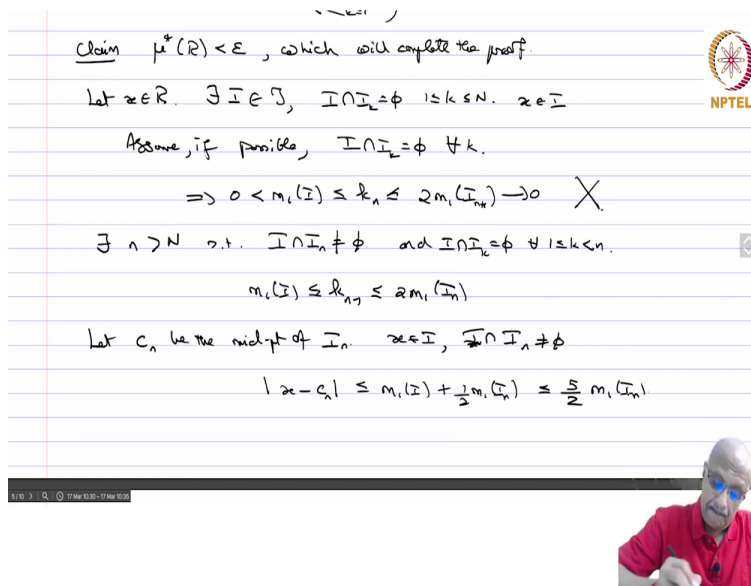 Claim μ*(R) < ε, which will complete the proof.
NPTEL
Let x∈R. ∃ I∈ℐ, I∩I_k=φ 1≤k≤N. x∈I
Assume, if possible, I∩I_k=φ ∀k.
⇒ 0 < m₁(I) ≤ k_n ≤ 2m₁(I_{n+1}) → 0 X.
∃ n>N s.t. I∩I_n≠φ and I∩I_k=φ ∀ 1≤k<n.
m₁(I) ≤ k_{n-1} ≤ 2m₁(I_n)
Let c_n be the mid-pt of I_n. x∈I, I∩I_n≠φ
|x-c_n| ≤ m₁(I)+½m₁(I_n) ≤ 5/2 m₁(I_n).
5/10 17 Mar 10:30 – 17 Mar 10:35